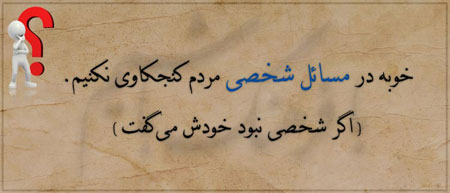 خوبه در مسائل شخصی مردم کنجکاوی نکنیم.
(اگر شخصی نبود خودش می‌گفت)